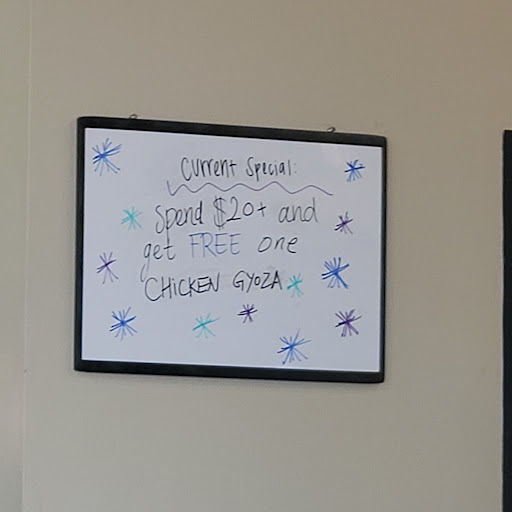 Current Special:
Spend $20+ and
get FREE one
CHICKEN GYOZA